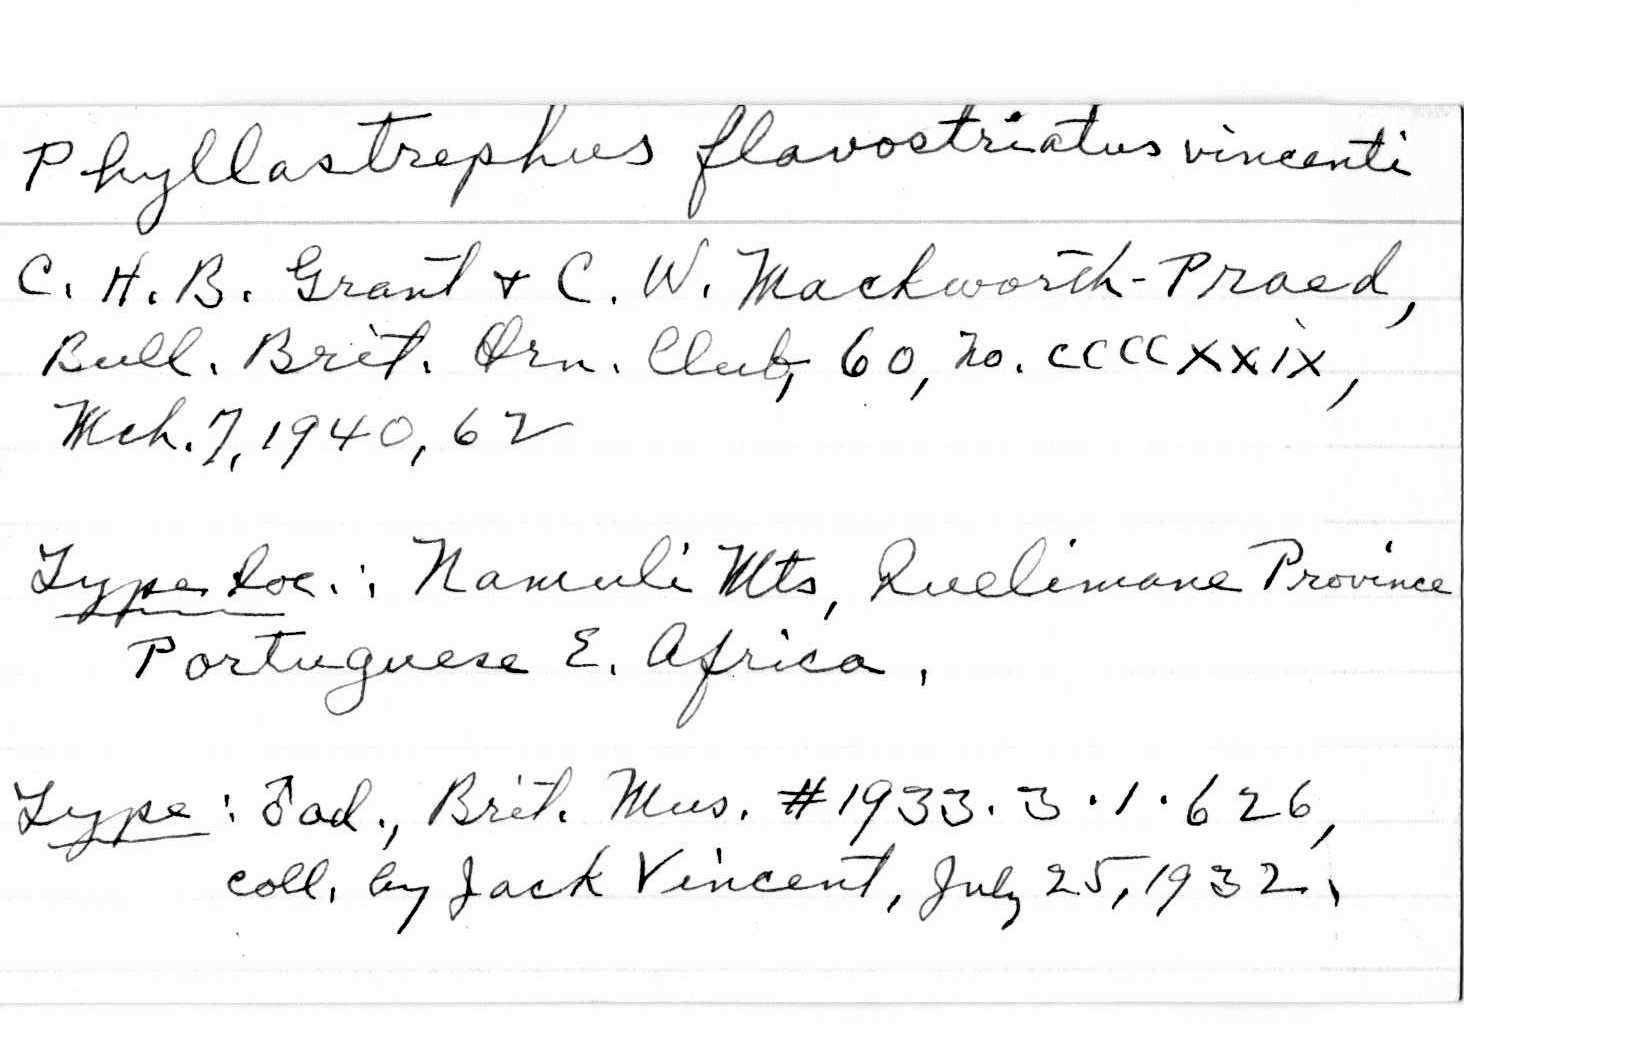 Phyllastrephus flavostriatus vincenti
C. H. B. Grant & C. W. Mackworth-Praed,
Bull. Brit. Orn. Club, 60, no. CCCCXXIX,
Mch. 7, 1940, 62
Type loc.: Namuli Mts, Quelimane Province
Portuguese E. Africa.
Type: ♂ ad., Brit. Mus. #1933.3.1.626,
coll. by Jack Vincent, July 25, 1932.